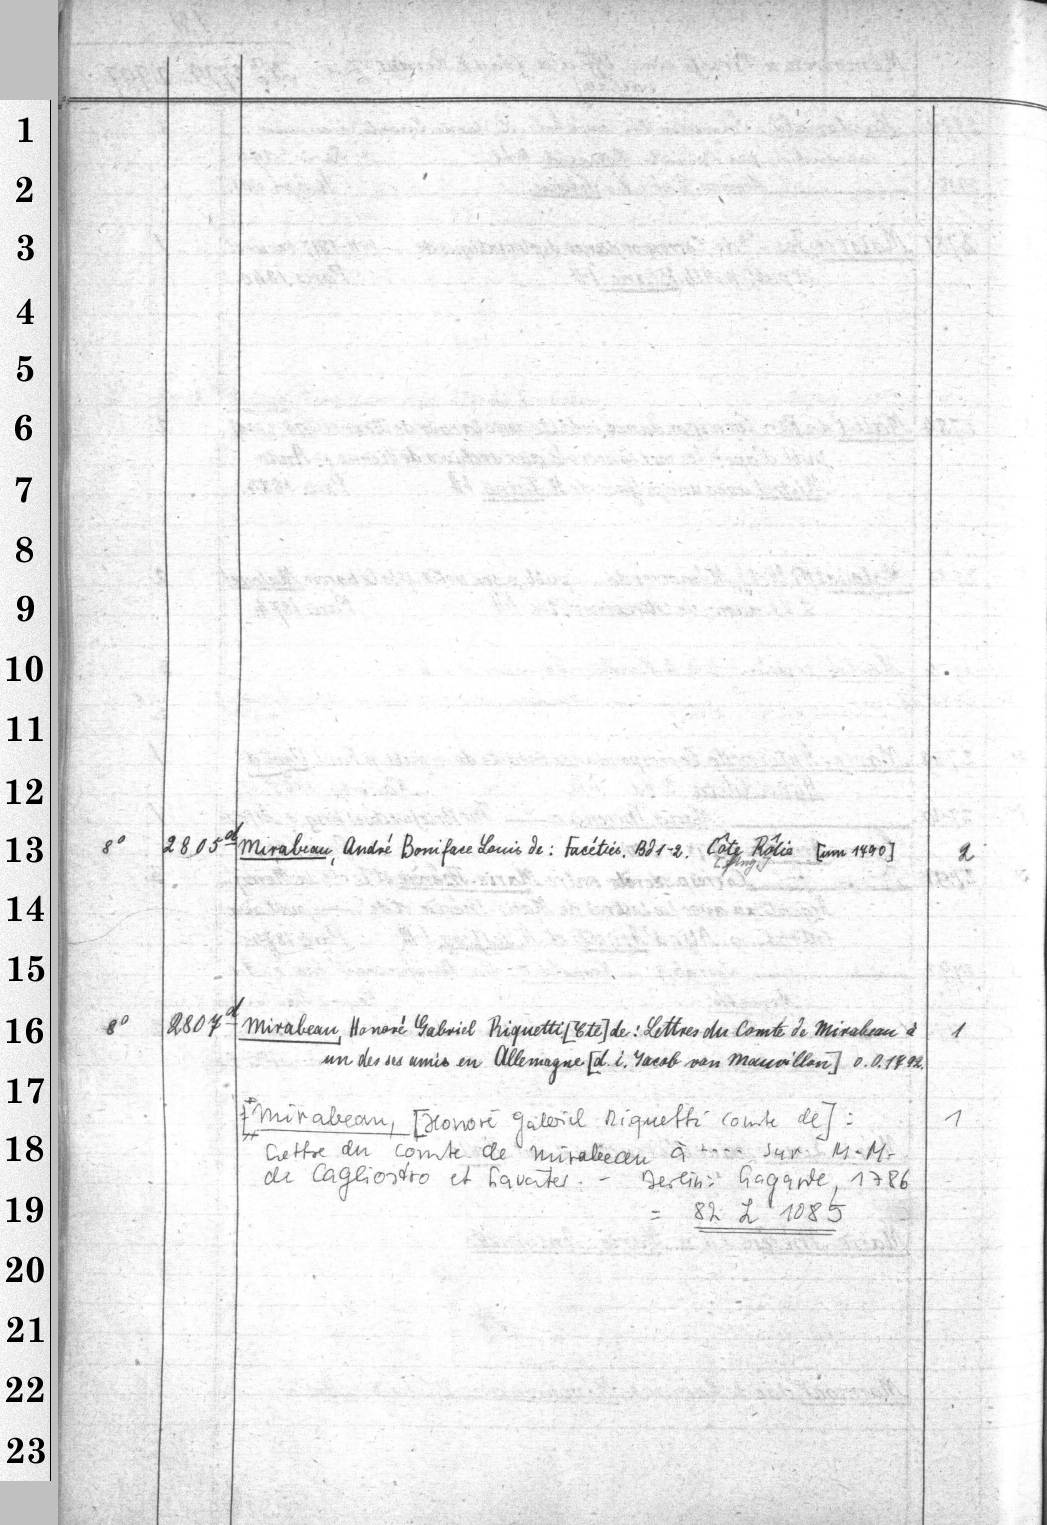 1
2
3
4
5
6
7
8
9
10
11
12
13 8° 2805d Mirabeau, André Boniface Louis de: Facéties. Bd 1-2. Côte Rôtie [um 1790] 2
14
15
16 8° 2807d Mirabeau, Honoré Gabriel Riquetti [Cte] de: Lettres du Comte de Mirabeau à 1
un des ses amis en Allemagne [d. i. Jacob van Mauvillon] o.O. 1792.
17 Mirabeau, [Honoré Gabriel Riquetti comte de]: 1
18 Lettre du comte de Mirabeau à .... sur M.M.
de Cagliostro et Lavater. - Berlin: Lagarde, 1786
19 = 82 L 1085
20
21
22
23